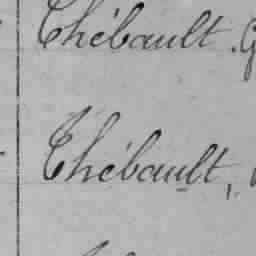 Thébault. G
Thébault,